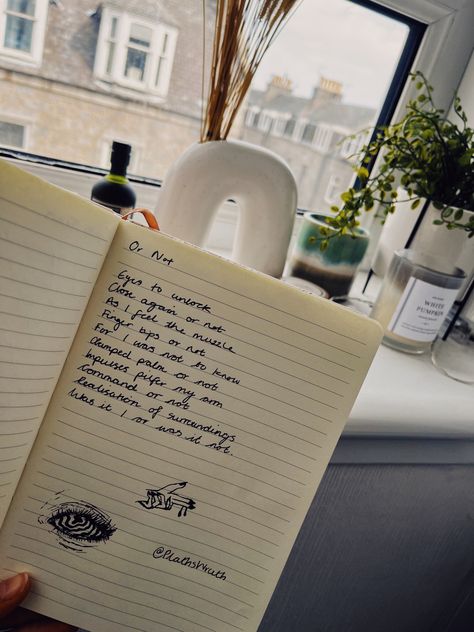 Or Not
Eyes to unlock
Close again or not
As I feel the muzzle
Finger tips or not
For I was not to know
Clamped palm or not
Impulses pilfer my arm
Command or not
realisation of surroundings
Was it I or was it not.
@PlathsWrath
WHITE
PUMPKIN